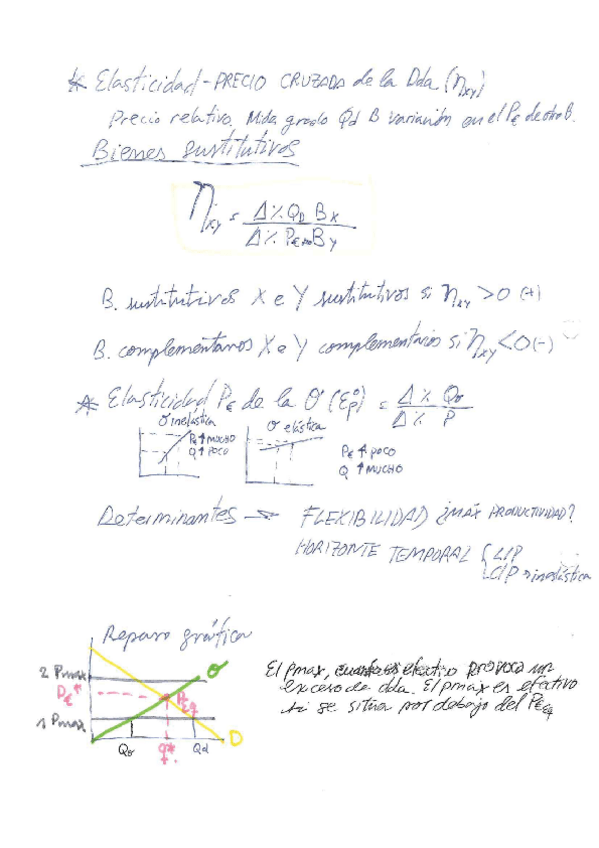 * Elasticidad - PRECIO CRUZADA de la Dda (η xy)
Precio relativo. Mida grado Qd B variación en el P€ de otro B.
Bienes sustitutivos
η xy = Δ% QD Bx / Δ% P€ By
B. sustitutivos X e Y sustitutivos si η xy > 0 (+)
B. complementarios X e Y complementarios si η xy < 0 (-)
* Elasticidad P€ de la O (E°p) = Δ% Qo / Δ% P
O inelástica
P€ ↑ MUCHO
Q ↑ POCO
O elástica
P€ ↑ POCO
Q ↑ MUCHO
Determinantes → FLEXIBILIDAD ¿MÁX PRODUCTIVIDAD?
HORIZONTE TEMPORAL { L/P
C/P → inelástica
Repaso gráfica
2 Pmax
P€*
1 Pmax
O
PEq
D
Qo
q*
Qd
El pmax, cuando es efectivo provoca un
exceso de dda. El pmax es efectivo
si se situa por debajo del PEq